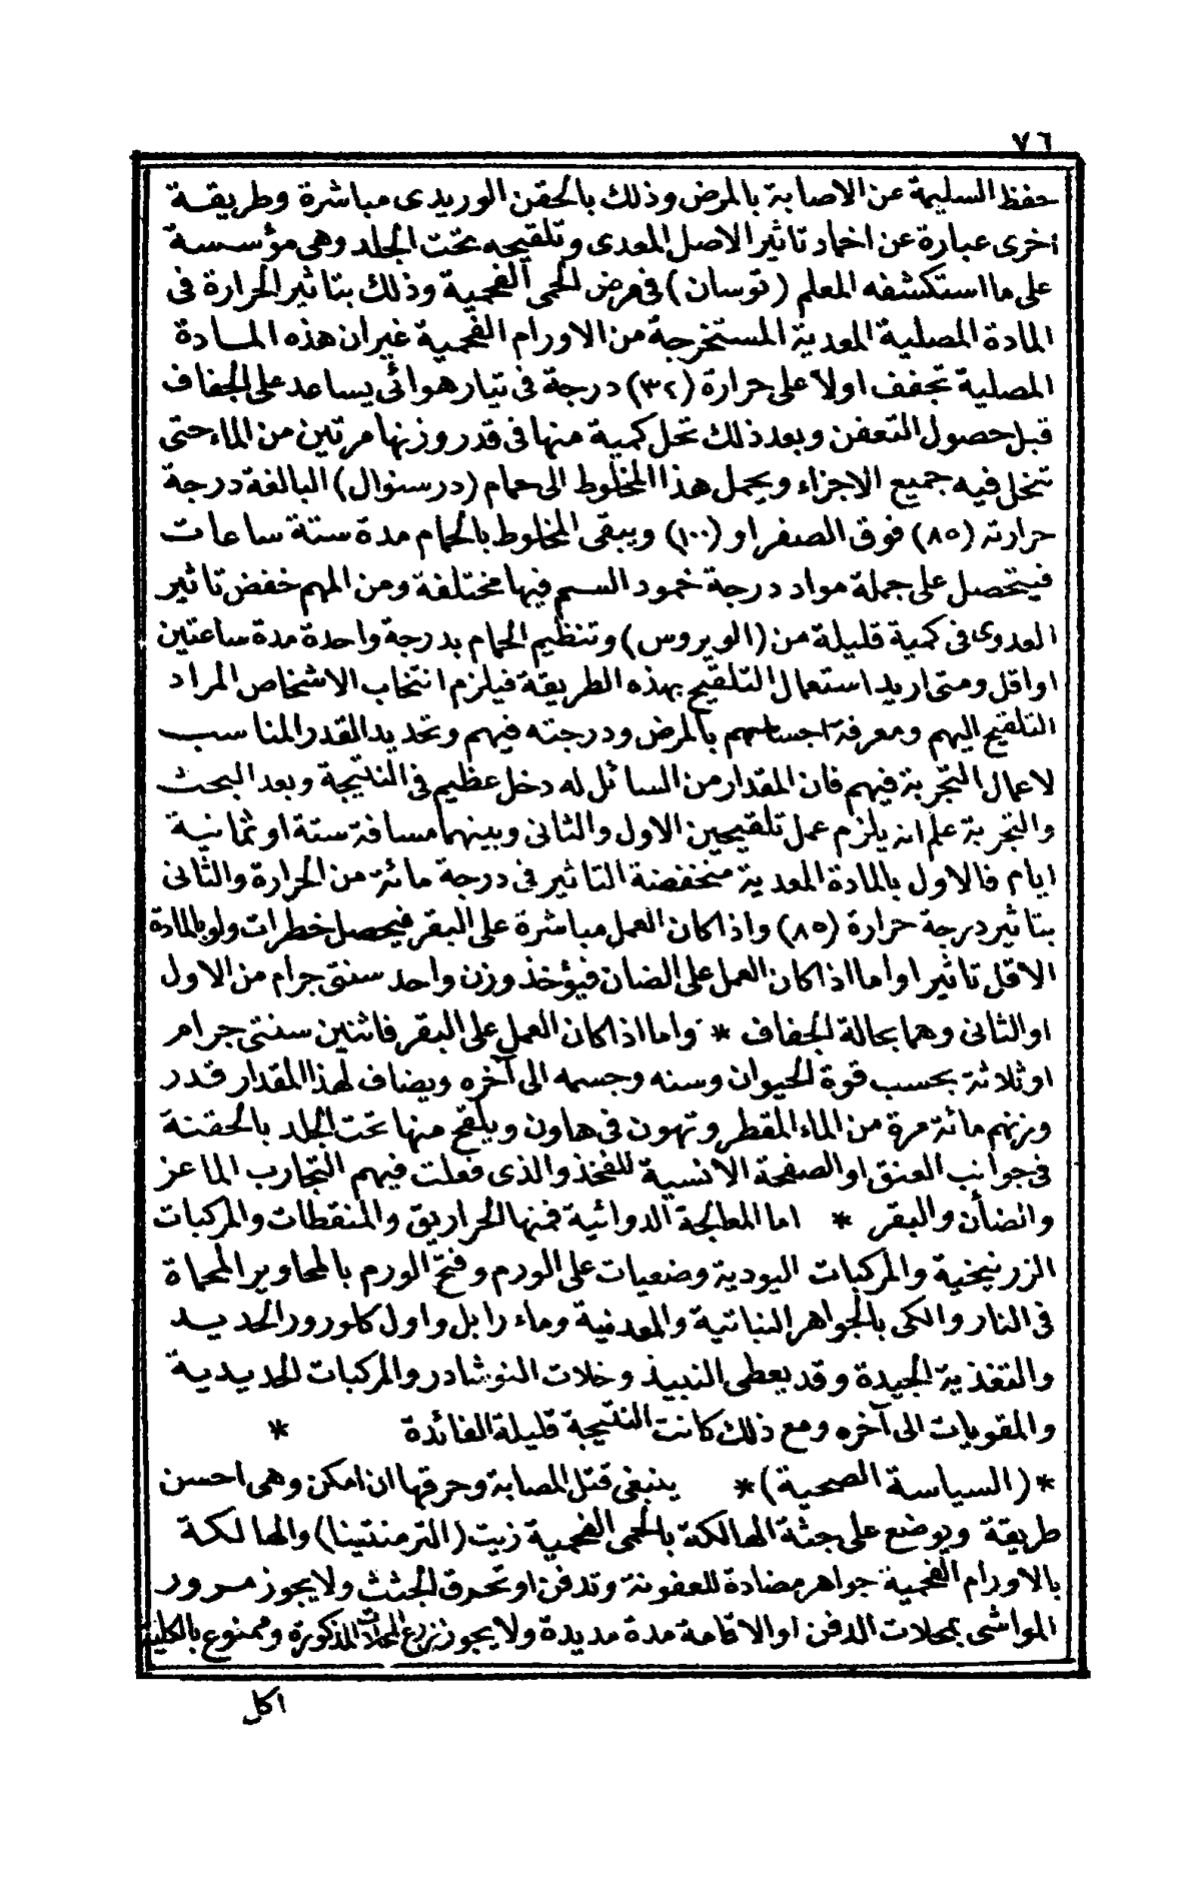 ٧٦
حفظ السليمة عن الاصابة بالمرض وذلك بالحقن الوريدى مباشرة وطريقة
أخرى عبارة عن اخماد تاثير الاصل المعدى وتلقيحه تحت الجلد وهى مؤسسة
على ما استكشفه المعلم (توسان) فى مرض الحمى الفحمية وذلك بتاثير الحرارة فى
المادة المصلية المعدية المستخرجة من الاورام الفحمية غيران هذه المادة
المصلية تجفف اولا على حرارة (٣٢) درجة فى تيار هوائى يساعد على الجفاف
قبل حصول التعفن وبعد ذلك تحل كمية منها فى قدر وزنها مرتين من الماء حتى
تنحل فيه جميع الاجزاء ويحمل هذا المخلوط الى حمام (درسنوال) البالغة درجة
حرارته (٨٥) فوق الصفر او (١٠٠) ويبقى المخلوط بالحمام مدة ستة ساعات
فيتحصل على جملة مواد درجة خمود السم فيها مختلفة ومن المهم خفض تاثير
العدوى فى كمية قليلة من (الويروس) وتنظيم الحمام بدرجة واحدة مدة ساعتين
او اقل ومتى اريد استعمال التلقيح بهذه الطريقة فيلزم انتخاب الاشخاص المراد
التلقيح اليهم ومعرفة احساسهم بالمرض ودرجته فيهم وتحديد القدر المناسب
لاعمال التجربة فيهم فان المقدار من السائل له دخل عظيم فى النتيجة وبعد البحث
والتجربة علم انه يلزم عمل تلقيحين الاول والثانى وبينهما مسافة ستة او ثمانية
ايام فالاول بالمادة المعدية منخفضة التاثير فى درجة مائة من الحرارة والثانى
بتاثير درجة حرارة (٨٥) واذا كان العمل مباشرة على البقر فيحصل خطرات ولو بالمادة
الاقل تاثيرا واما اذا كان العمل على الضان فيؤخذ وزن واحد سنتى جرام من الاول
او الثانى وهما بحالة الجفاف * واما اذا كان العمل على البقر فاثنين سنتى جرام
او ثلاثة بحسب قوة الحيوان وسنه وجسمه الى آخره ويضاف لهذا المقدار قدر
وزنهم مائة مرة من الماء المقطر وتهون فى هاون ويلقح منها تحت الجلد بالحقنة
فى جوانب العنق او الصفحة الانسية للفخذ والذى فعلت فيهم التجارب الماعز
والضأن والبقر * اما المعالجة الدوائية فمنها الحراريق والمنقطات والمركبات
الزرنيخية والمركبات اليودية وضعيات على الورم وفتح الورم بالمحاوير المحماة
فى النار والكى بالجواهر النباتية والمعدنية وماء رابل واول كلورور الحديد
والتغذية الجيدة وقد يعطى النبيذ وخلات النوشادر والمركبات الحديدية
والمقويات الى آخره ومع ذلك كانت النتيجة قليلة الفائدة *
* (السياسة الصحية) * ينبغى قتل المصابة وحرقها ان امكن وهى احسن
طريقة ويوضع على جثة الهالكة بالحمى الفحمية زيت (الترمنتينا) والهالكة
بالاورام الفحمية جواهر مضادة للعفونة وتدفن او تحرق الجثث ولا يجوز مرور
المواشى بمحلات الدفن او الاقامة مدة مديدة ولا يجوز زرع المحلات المذكورة وممنوع بالكلية
اكل